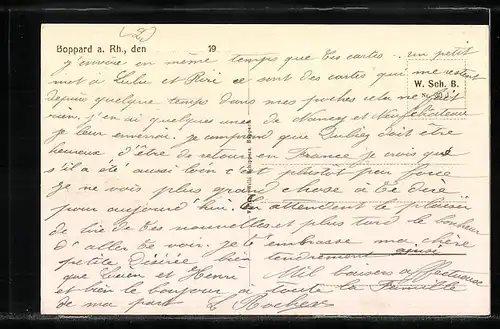 (2)
Boppard a. Rh., den 19
j'envoie en même temps que tes cartes .. un petit
mot à Lulu et Riri ce sont des cartes qui me restent
depuis quelque temps dans mes poches cela ne fait
W. Sch. B.
rien, j'en ai quelques unes de Nancy et Neufchateau
je leur enverrai. je comprend que doit être
heureux d'être de retour en France je crois que
s'il a été aussi loin c'est plutôt par force
je ne vois plus grand chose à te dire
pour aujourd'hui. En attendent le plaisir
de lire de tes nouvelles et plus tard le bonheur
d'aller te voir. je t'embrasse ma chère
petite Désirée bien tendrement ainsi
que Lucien et Henri Mil baisers affectueux
et bien le bonjour à toute la Famille
de ma part L. Rocher